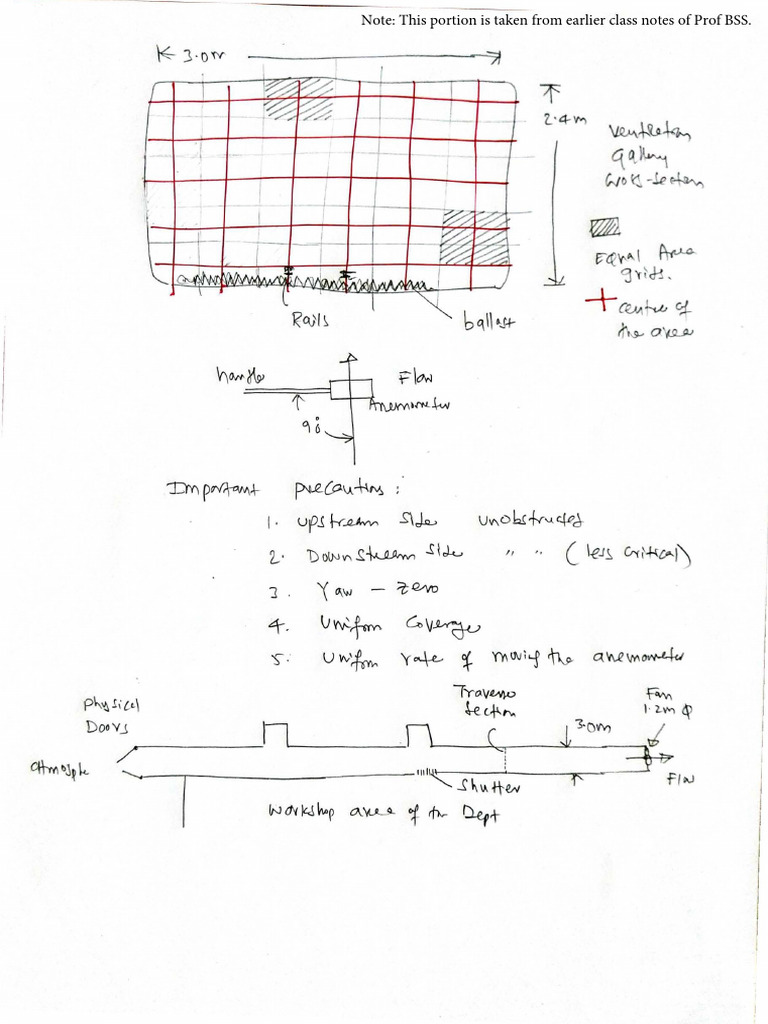 Note: This portion is taken from earlier class notes of Prof BSS.
3.0m
2.4m
Ventilation
gallery
cross-section
Equal Area
grids.
centre of
the area
Rails
ballast
handle
Flow
Anemometer
90°
Important precautions:
1. Upstream side unobstructed
2. Downstream side " " (less critical)
3. Yaw – zero
4. Uniform coverage
5. Uniform rate of moving the anemometer
Physical
Doors
Traverse
section
Fan
1.2m φ
3.0m
Atmosphe
Flow
Shutter
Workshop area of the Dept